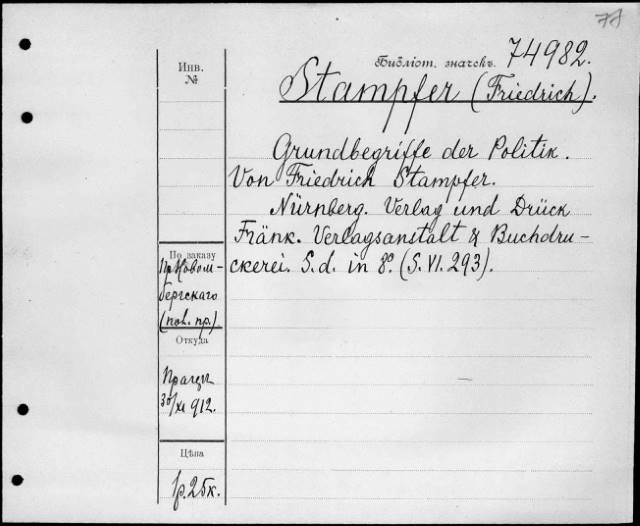 77
Инв.
№
Библіот. значекъ 74982.
Stampfer (Friedrich).
Grundbegriffe der Politik.
Von Friedrich Stampfer.
Nürnberg. Verlag und Drück
Fränk. Verlagsanstalt & Buchdru-
ckerei. S.d. in 8º. (S. VI. 293).
По заказу
Пр. Новом-
бергскаго
(нов. пр.)
Откуда
Прагеръ
30/XI 912.
Цѣна
1р.25к.